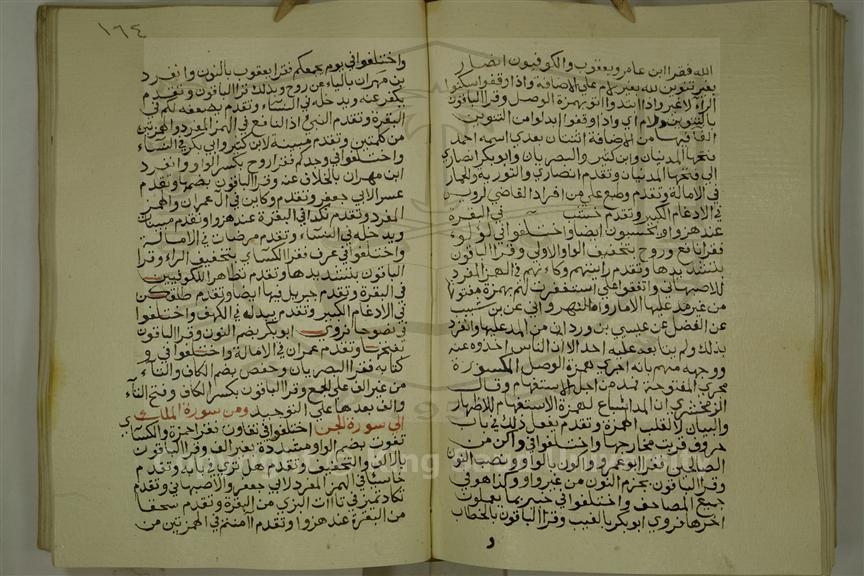 الله فقرا ابن عامر ويعقوب والكوفيون انصار
بغير تنوين لله بغير لام على الاضافة واذا وقفوا اسكنوا
الراء لا غير واذا ابتدوا اتوا بهمزة الوصل وقرا الباقون
بالتنوين ولام واذا وقفوا ابدلوا من التنوين
الفا فيها من الاضافة اثنتان بعدي اسمه احمد
فتحها المدنيان وابن كثير والبصريان وابوبكر انصاري
الى فتحها المدنيان وتقدم انصاري والتورية والحمار
في الامالة وتقدم وطبع على من افراد القاضي لرويس
في الادغام الكبير وتقدم خشب في البقرة
عند هزوا ويحسبون ايضا واختلفوا في لووا
فقرا نافع وروح بتخفيف الواو الاولى وقرا الباقون
بتشديدها وتقدم رايتهم وكانهم في الهمز المفرد
للاصبهاني واتفقوا على استغفرت لهم بهمزة مفتوحة
من غير مد عليها الا ما رواه النهرواني عن بن شبيب
عن الفضل عن عيسى بن وردان من المد عليها وانفرد
بذلك ولم يتابعه عليه احد الا ان الناس اخذوه عنه
ووجهه بانه اجرى همزة الوصل المكسورة
مجرى المفتوحة فمد من اجل الاستفهام وقال
الزمخشري ان المد اشباع لهمزة الاستفهام للاظهار
والبيان لا لقلب الهمزة وتقدم يفعل ذلك في باب
حروف قربت مخارجها واختلفوا في واكن من
الصالحين فقرا ابوعمرو واكون بالواو ونصب النون
وقرا الباقون بجزم النون من غير واو وكذا هو في
جميع المصاحف واختلفوا في خبير بما يعملون
اخرها فروى ابوبكر بالغيب وقرا الباقون بالخطاب
و
١٦٤
واختلفوا في يوم يجمعكم فقرا يعقوب بالنون وانفرد
بن مهران بالياء عن روح وبذلك قرا الباقون وتقدم
يكفر عنه ويدخله في النساء وتقدم يضعفه لكم في
البقرة وتقدم النبي اذا لنافع في الهمز المفرد والهمزتين
من كلمتين وتقدم مبينة لابن كثير وابي بكر في النساء
واختلفوا في وجدكم فقرا روح بكسر الواو وانفرد
ابن مهران بالخلاف عنه وقرا الباقون بضمها وتقدم
عسر لابي جعفر وتقدم وكاين في ال عمران والهمز
المفرد وتقدم نكرا في البقرة عند هزوا وتقدم مبينات
ويدخله في النساء وتقدم مرضات في الامالة
واختلفوا في عرف فقرا الكساي بتخفيف الراء وقرا
الباقون بتشديدها وتقدم تظاهرا للكوفيين
في البقرة وتقدم جبريل فيها ايضا وتقدم طلقكن
في الادغام الكبير وتقدم يبدله في الكهف واختلفوا
في نصوحا فروى ابوبكر بضم النون وقرا الباقون
بفتحها وتقدم عمران في الامالة واختلفوا في و
كتابه فقرا البصريان وحفص بضم الكاف والتاء
من غير الف على الجمع وقرا الباقون بكسر الكاف وفتح التاء
والف بعدها على التوحيد ومن سورة الملك
الى سورة الجن اختلفوا في تفاوت فقرا حمزة والكساي
تفوت بضم الواو مشددة بغير الف وقرا الباقون
بالالف والتخفيف وتقدم هل ترى في بابه وتقدم
خاسيا في الهمز المفرد لابي جعفر والاصبهاني وتقدم
تكاد تميز في تاات البزي من البقرة وتقدم سحقا
من البقرة عند هزوا وتقدم اامنتم في الهمزتين من